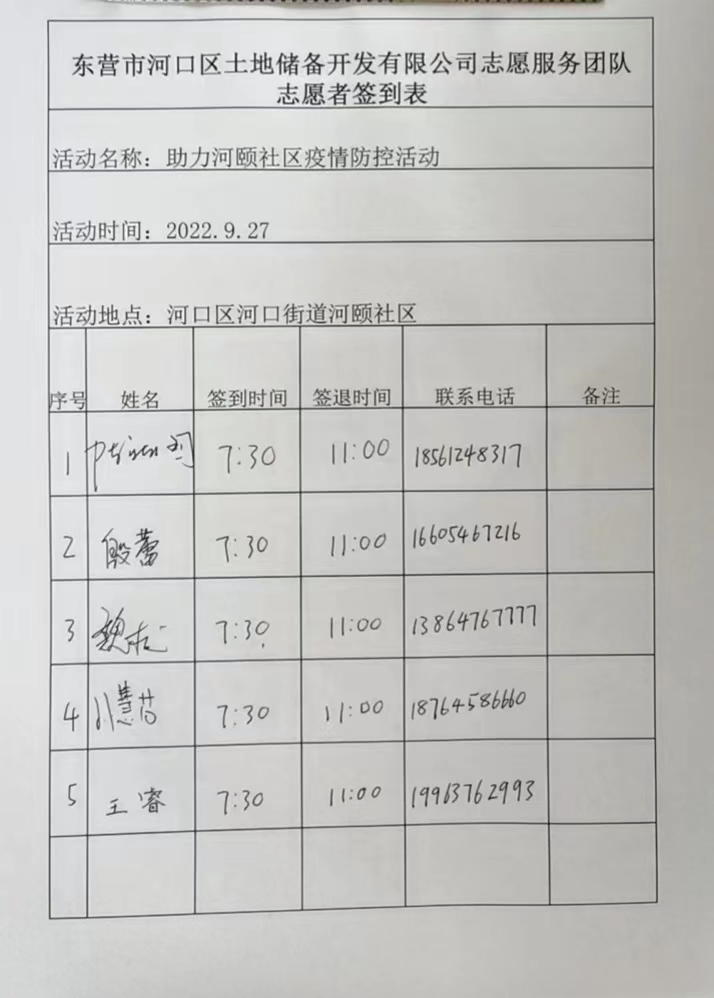 东营市河口区土地储备开发有限公司志愿服务团队
志愿者签到表
活动名称：助力河颐社区疫情防控活动
活动时间：2022.9.27
活动地点：河口区河口街道河颐社区
序号 姓名 签到时间 签退时间 联系电话 备注
1 7:30 11:00 18561248317
2 殷蕾 7:30 11:00 16605467216
3 7:30 11:00 13864767777
4 7:30 11:00 18764586660
5 王睿 7:30 11:00 19963762993